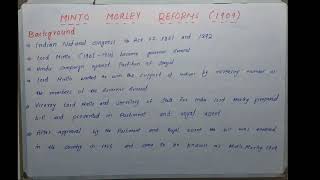 MINTO MORLEY REFORMS (1909)
Background
Indian National congress to Act of 1861 and 1892
Lord Minto (1905-1910) became governor General
Hindu campaign against Partition of Bengal
Lord Minto wanted to win the support of Indian by increasing number as
the members of the General
Viceroy Lord Minto and Secretary of State for India Lord Morley prepared
bill and presented in Parliament and royal assent
After approval by the Parliament and Royal assent the bill was enforced
in the country in 1909 and came to be known as Minto Morley